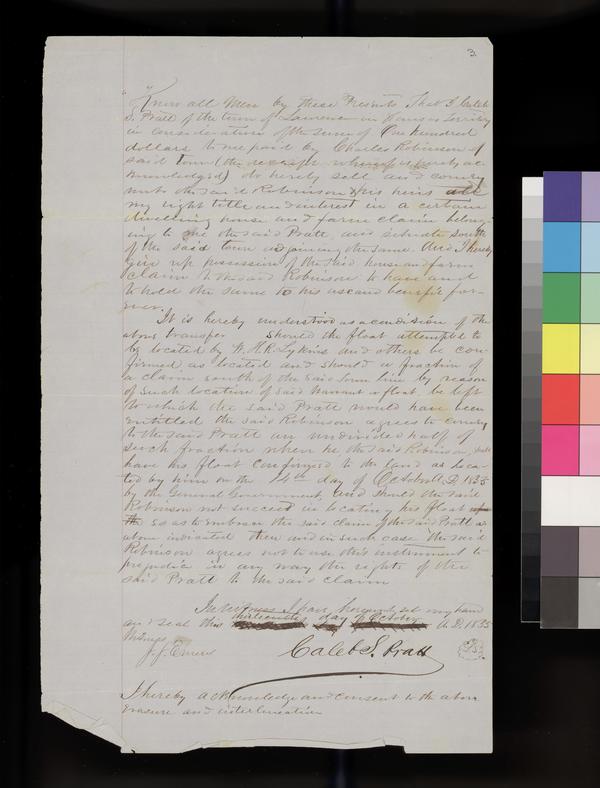 3
Know all Men by these Presents That I Caleb
S. Pratt of the town of Lawrence in Kansas Territory
in consideration of the sum of One hundred
dollars to me paid by Charles Robinson of
said town (the receipt whereof is hereby ac
knowledged) do hereby sell and convey
unto the said Robinson & his heirs all
my right title and interest in a certain
dwelling house and farm claim belong
ing to me the said Pratt and situate south
of the said town adjoining the same. And I hereby
give up possession of the said house and farm
claim to the said Robinson to have and
to hold the same to his use and benefit for-
ever.
It is hereby understood as a condition of the
above transfer should the float attempted to
be located by W. H. R. Lykins and others be con-
firmed as located and should a fraction of
a claim south of the said town line by reason
of such location of said Warrant or float be left
to which the said Pratt would have been
entitled the said Robinson agrees to convey
to the said Pratt an undivided half of
such fraction when he the said Robinson shall
have his float confirmed to the land as loca-
ted by him on the 14th day of October A.D. 1855
by the General Government, and should the said
Robinson not succeed in locating his float
the so as to embrace the said claim of the said Pratt as
above indicated then and in such case the said
Robinson agrees not to use this instrument to
prejudice in any way the rights of the
said Pratt to the said claim
In witness I have hereunto set my hand
and seal this thirteenth day of October A.D. 1855
Witness
J. J. Emery Caleb S. Pratt
I hereby acknowledge and consent to the above
erasure and interlineation